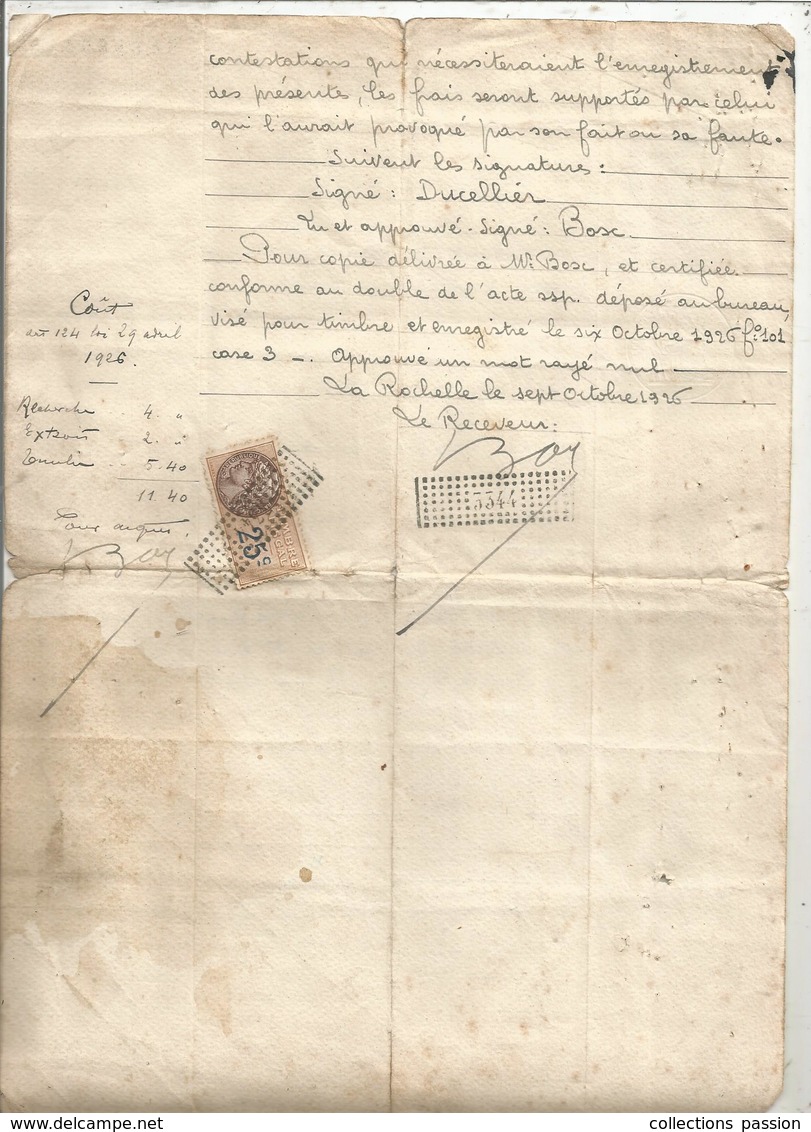 contestations qui nécessiteraient l'enregistrement
des présentes, les frais seront supportés par celui
qui l'aurait provoqué par son fait ou sa faute.
Suivent les signatures:
Signé: Ducellier
Lu et approuvé - Signé: Bosc
Pour copie délivrée à Mr. Bosc, et certifiée
conforme au double de l'acte ssp. déposé au bureau,
visé pour timbre et enregistré le six Octobre 1926 fo. 101
case 3 -. Approuvé un mot rayé nul
La Rochelle le sept Octobre 1926
Le Receveur:
3344
Coût
art 124 loi 29 avril
1926.
Recherche 4. "
Extrait 2. "
Timbre 5.40
11.40
Pour acquit,
25 c
collections passion